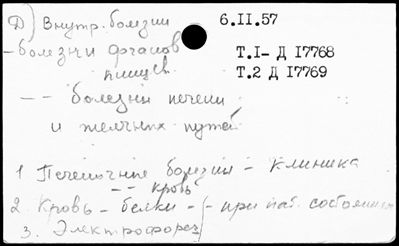 Д) Внутр. болезни
6.II.57
– болезни органов
пищев.
Т.I- Д 17768
Т.2 Д 17769
– – болезни печени
и желчных путей
1 Печеночные болезни – Клиника
– – кровь
2. Кровь – белки – при пат. состояниях
3. Электрофорез